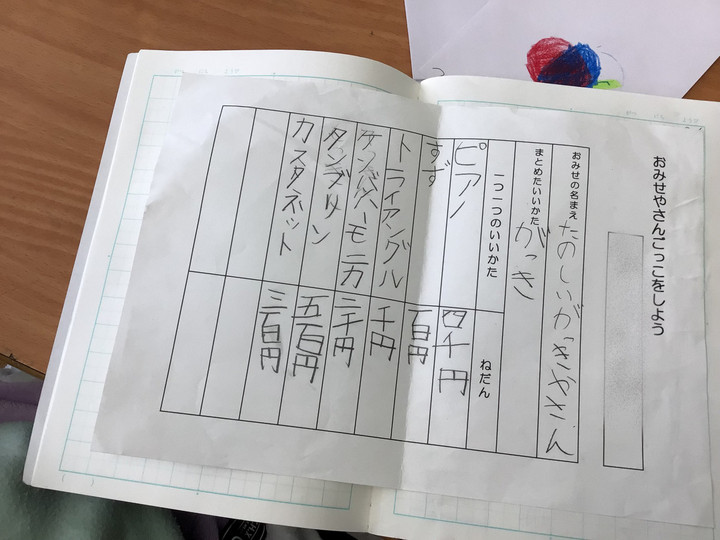 おみせやさんごっこをしよう
おみせの名まえ たのしいがっきやさん
まとめたいいかた がっき
一つ一つのいいかた ねだん
ピアノ 四千円
すず 百円
トライアングル 千円
ケンバハーモニカ 二千円
タンブリン 五百円
カスタネット 三百円